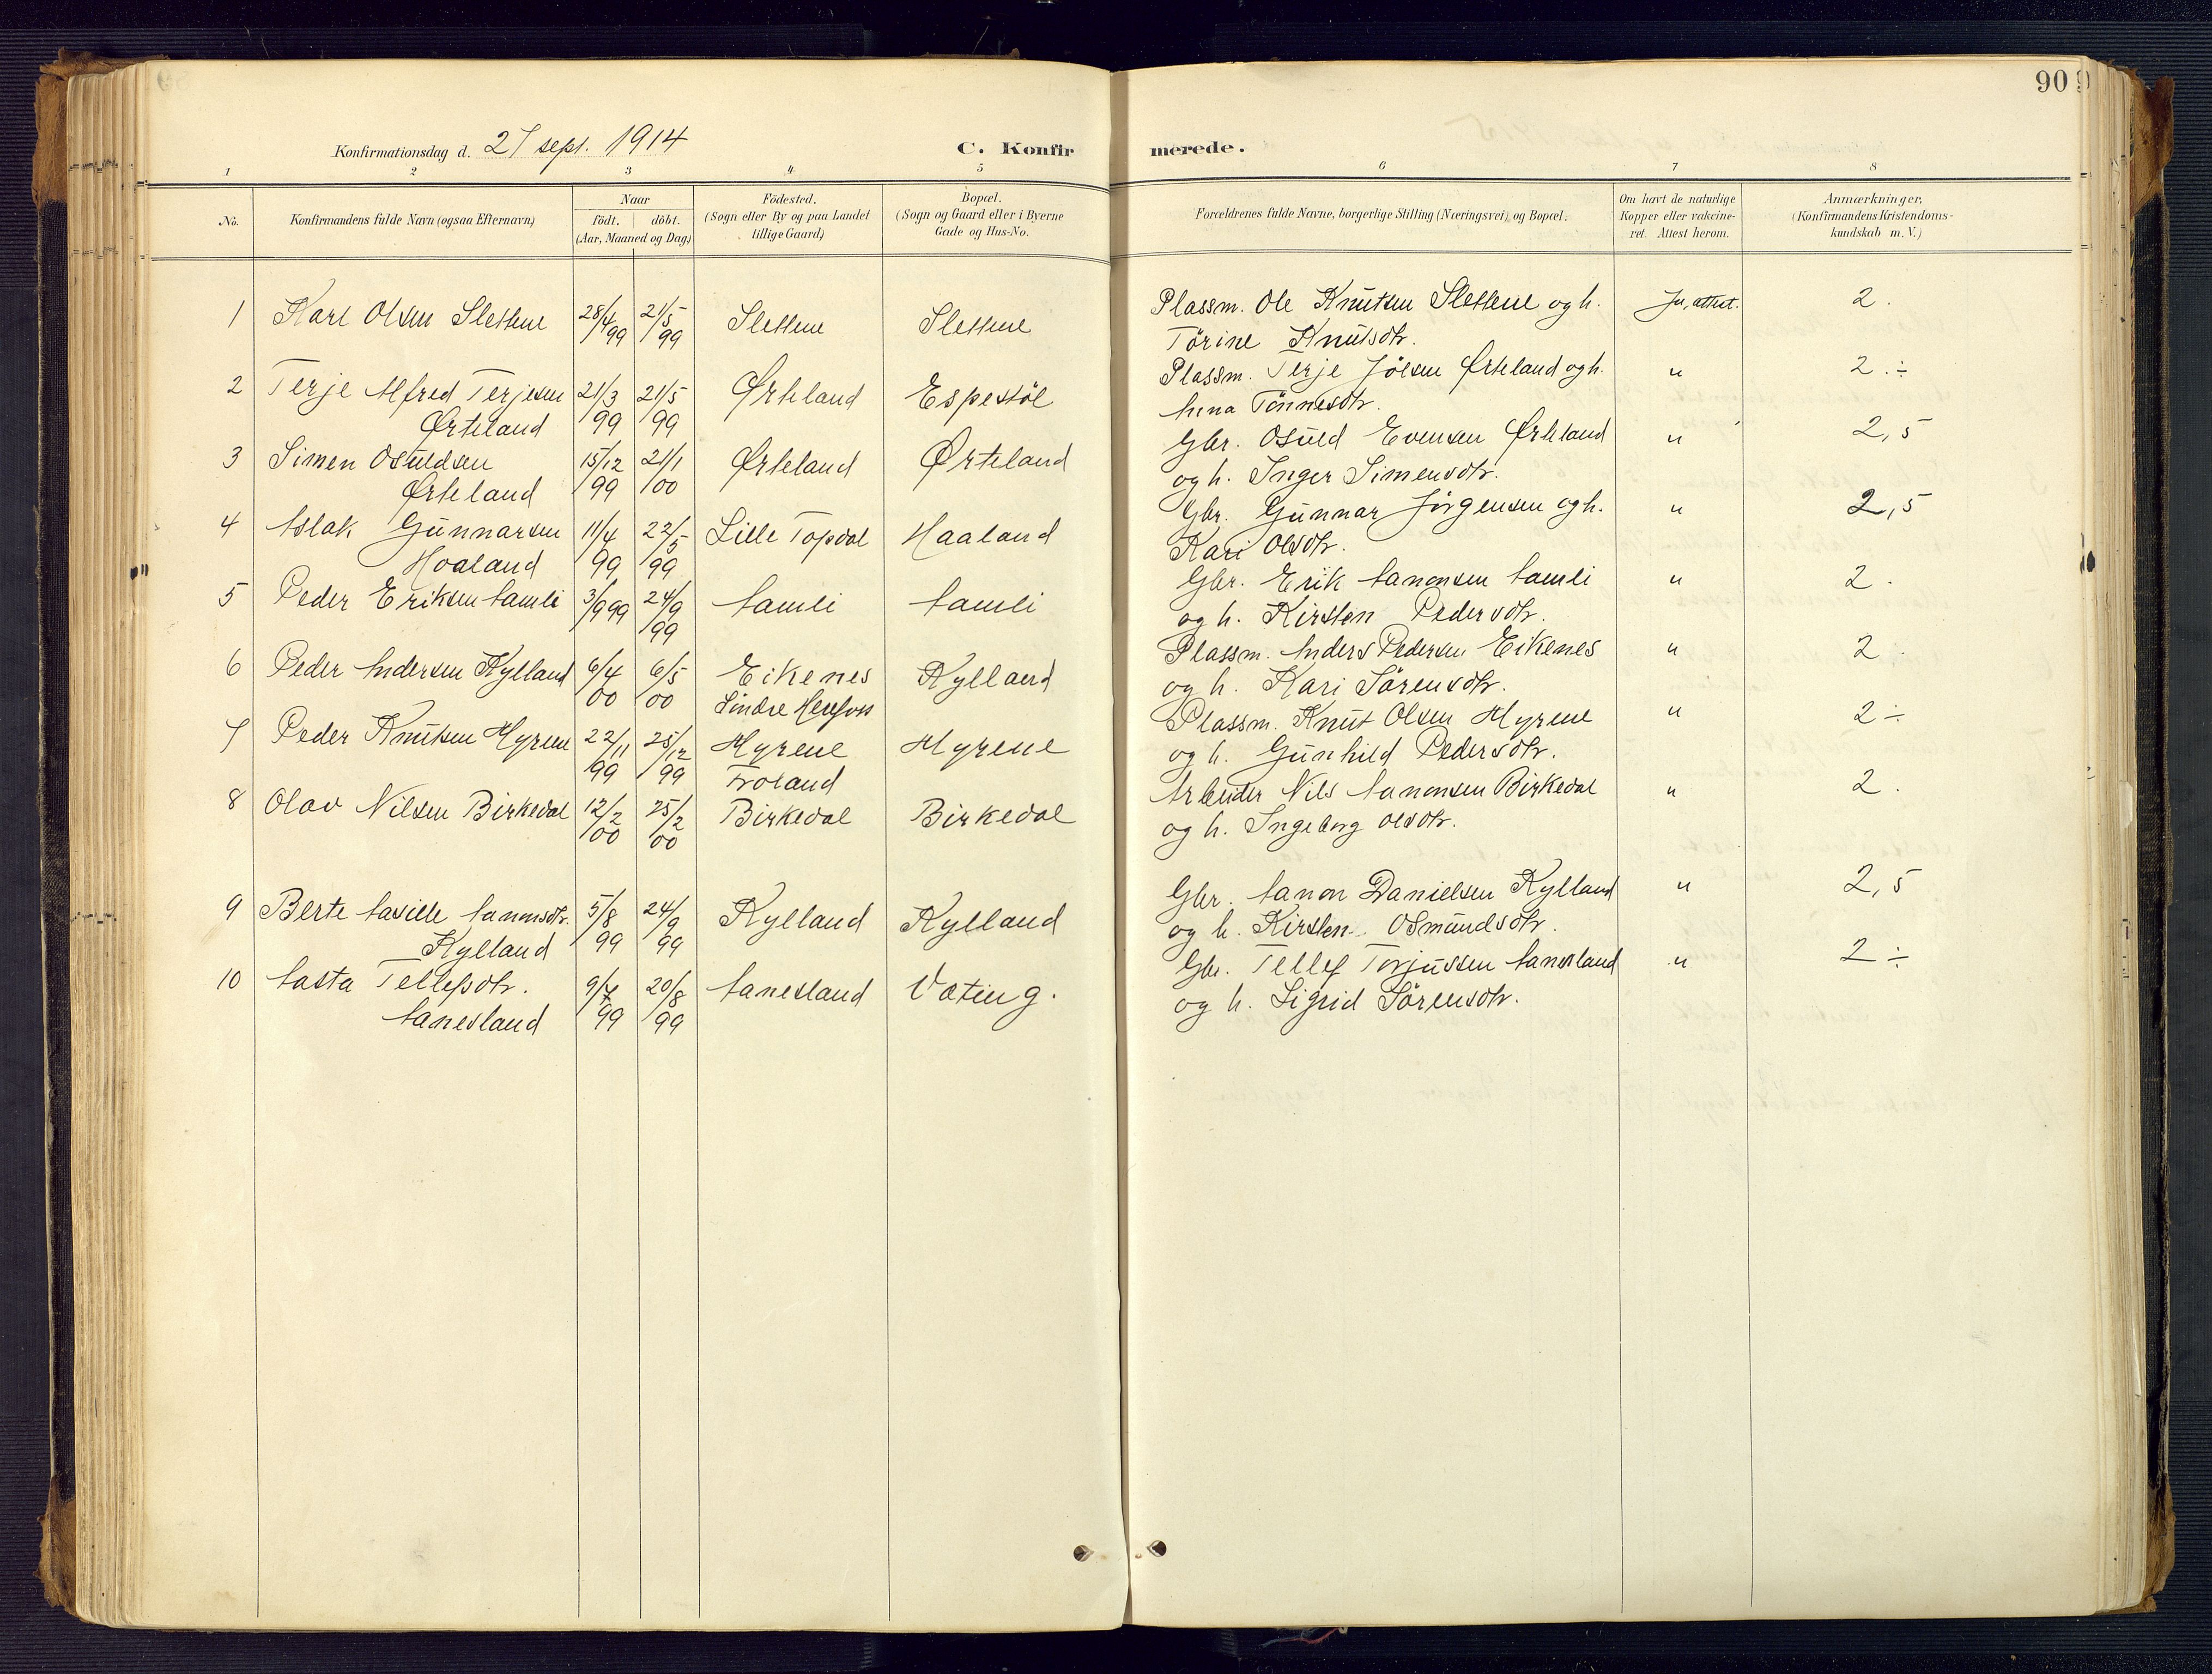 90
Konfirmationsdag d. 27 sept. 1914
C. Konfirmerede.
1 2 3 4 5 6 7 8
No.
Konfirmandens fulde Navn (ogsaa Efternavn)
Naar
födt. döbt.
(Aar, Maaned og Dag)
Födested.
(Sogn eller By og paa Landet
tillige Gaard)
Bopæl.
(Sogn og Gaard eller i Byerne
Gade og Hus-No.
Forældrenes fulde Navne, borgerlige Stilling (Næringsvei), og Bopæl.
Om havt de naturlige
Kopper eller vakcine-
ret. Attest herom.
Anmærkninger.
(Konfirmandens Kristendoms-
kundskab m. V.)
1 Karl Olsen Slettene 28/4 99 21/5 99 Slettene Slettene Plassm. Ole Knutsen Slettene og h. Ja, attest. 2.
Törine Knutsdtr.
2 Terje Alfred Terjesen 21/3 99 21/5 99 Ørteland Espestöl Plassm. Terje Jölsen Ørteland og h. " 2.÷
Ørteland Anna Tönnesdtr.
3 Simen Osuldsen 15/12 99 21/1 00 Ørteland Ørteland Gbr. Osuld Evensen Ørteland " 2,5
Ørteland og h. Inger Simensdtr.
4 Aslak Gunnarsen 11/4 99 22/5 99 Lille Topdal Haaland Gbr. Gunnar Jörgensen og h. " 2,5
Haaland Kari Olsdtr.
5 Peder Eriksen Aamli 3/9 99 24/9 99 Aamli Aamli Gbr. Erik Aanonsen Aamli " 2.
og h. Kirsten Pedersdtr.
6 Peder Andersen Kylland 6/4 00 6/5 00 Eikenes Kylland Plassm. Anders Pedersen Eikenes " 2.
og h. Kari Sörensdtr.
7 Peder Knutsen Myrene 22/11 99 25/12 99 Myrene Myrene Plassm. Knut Olsen Myrene " 2÷
Froland og h. Gunhild Pedersdtr.
8 Olav Nilsen Birkedal 12/2 00 25/2 00 Birkedal Birkedal Arbeider Nils Aanonsen Birkedal " 2.
og h. Ingeborg Olsdtr.
9 Berte Aasille Aanonsdtr. 5/8 99 24/9 99 Kylland Kylland Gbr. Aanon Danielsen Kylland " 2,5
Kylland og h. Kirsten Osmundsdtr.
10 Aasta Tellefsdtr. 9/7 99 20/8 99 Aanesland Væting. Gbr. Tellef Torjussen Aanesland " 2÷
Aanesland og h. Sigrid Sörensdtr.